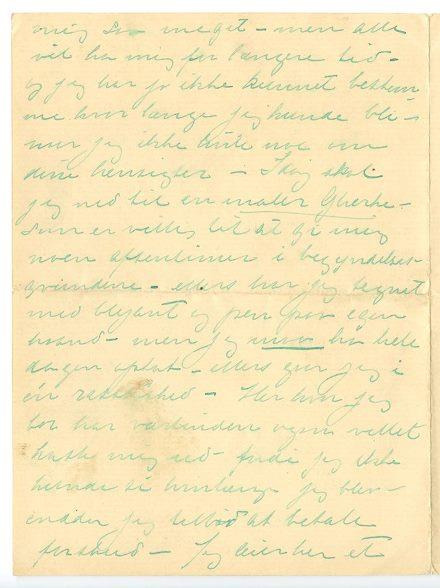 mig saa meget - men alle
vil ha mig for længere tid -
og jeg har jo ikke kunnet bestem
me hvor længe jeg kunde bli -
naar jeg ikke vidste noe om
dine hensigter - Idag skal
jeg ned til en maler
som er villig til at gi mig
noen aftentimer i begyndelses-
grundene - ellers har jeg tegnet
med blyant og pen paa egen
haand - men jeg maa ha hele
dagen optat - ellers gaar jeg i
én rastløshed - Her hvor jeg
bor har værtinden ogsaa villet
kaste mig ud - fordi jeg ikke
kunde si hvorlænge jeg blev -
endda jeg tilbød at betale
forskud - Jeg leier her et